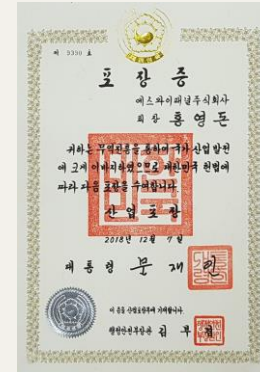 제 9390 호
포장증
에스와이패널주식회사
회장 홍영돈
귀하는 무역진흥을 통하여 국가 산업 발전
에 크게 이바지하였으므로 대한민국 헌법에
따라 다음 포장을 수여합니다.
산업포장
2018년 12월 7일
대통령 문재인
이 증을 산업포장부에 기재합니다.
행정안전부장관 김부겸